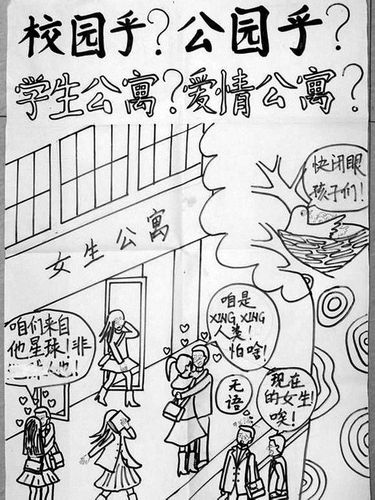 校园乎?公园乎?
学生公寓?爱情公寓?
快闭眼
孩子们!
女生公寓
咱们来自
他星球!非
人也!
咱是
XING XING
人类!
怕啥!
无语
现在
的女生!
唉!